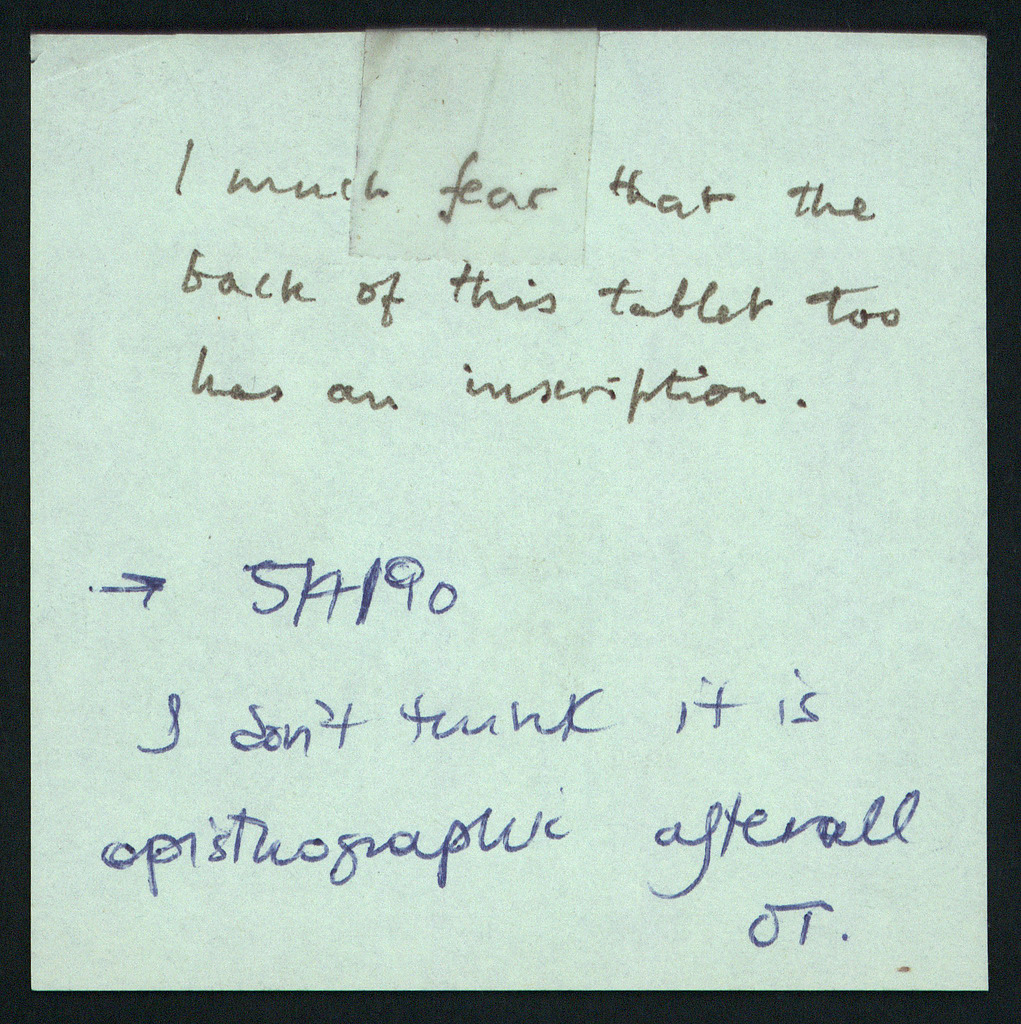 I much fear that the
back of this tablet too
has an inscription.
→ 5/4/90
I don't think it is
opisthographic afterall
OT.